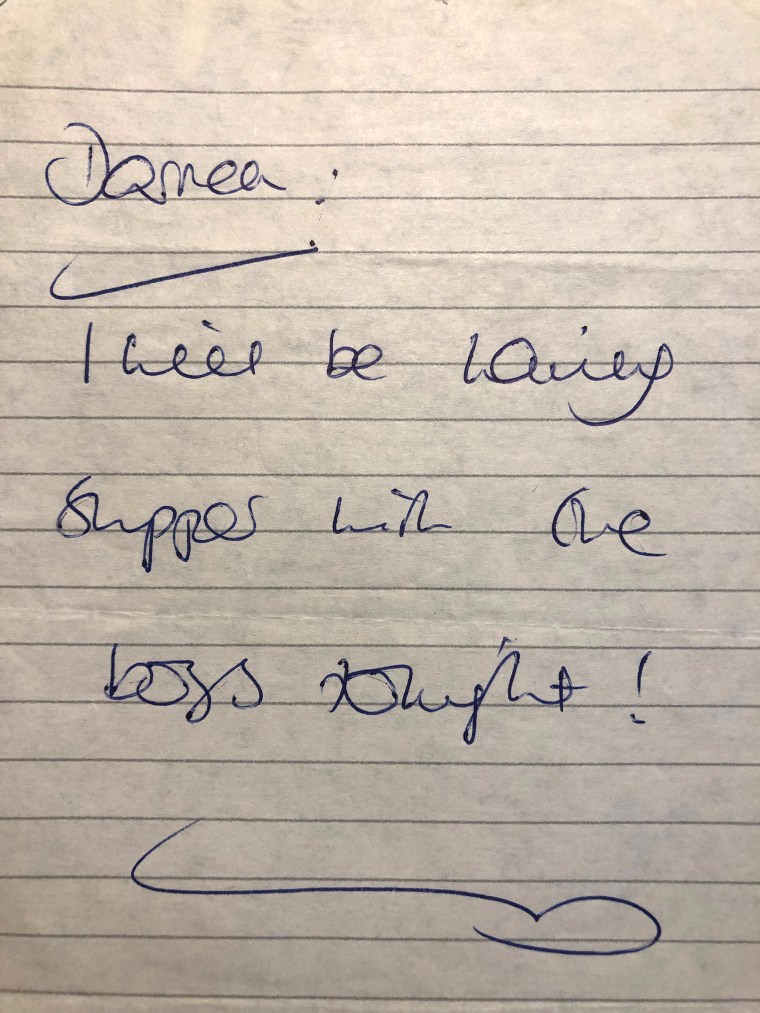 Darren :
I will be having
Supper with the
boys tonight !